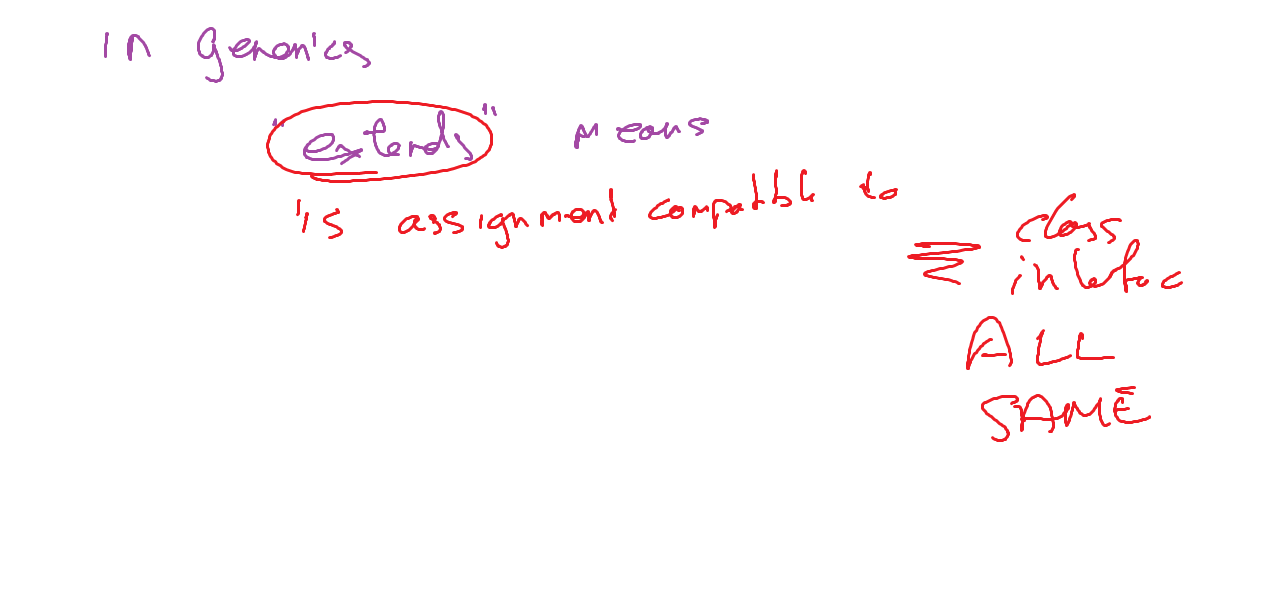 in Generics
"extends" means
is assignment compatible to
class
interfac
ALL
SAME